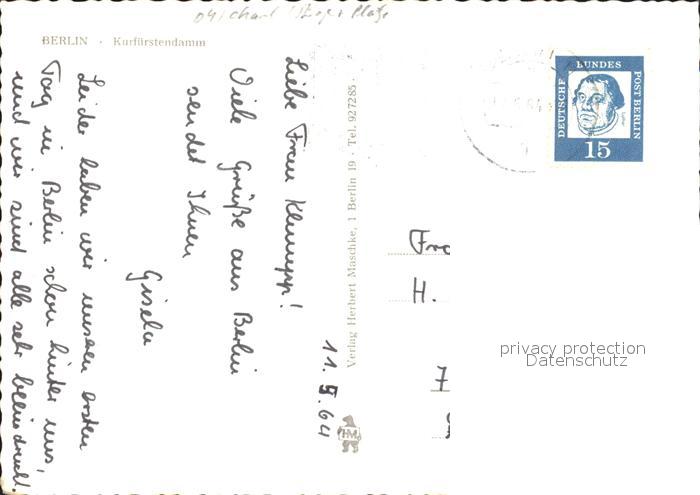 BERLIN · Kurfürstendamm
11.5.64
Liebe Frau Klumpp!
Viele Grüße aus Berlin
sendet Ihnen
Gisela
Leider haben wir unseren ersten
Tag in Berlin schon hinter uns,
und wir sind alle sehr beeindruckt.
Verlag Herbert Maschke, 1 Berlin 19 · Tel. 927285 ·
HM
DEUTSCHE BUNDES POST BERLIN
15
H.
7
privacy protection
Datenschutz